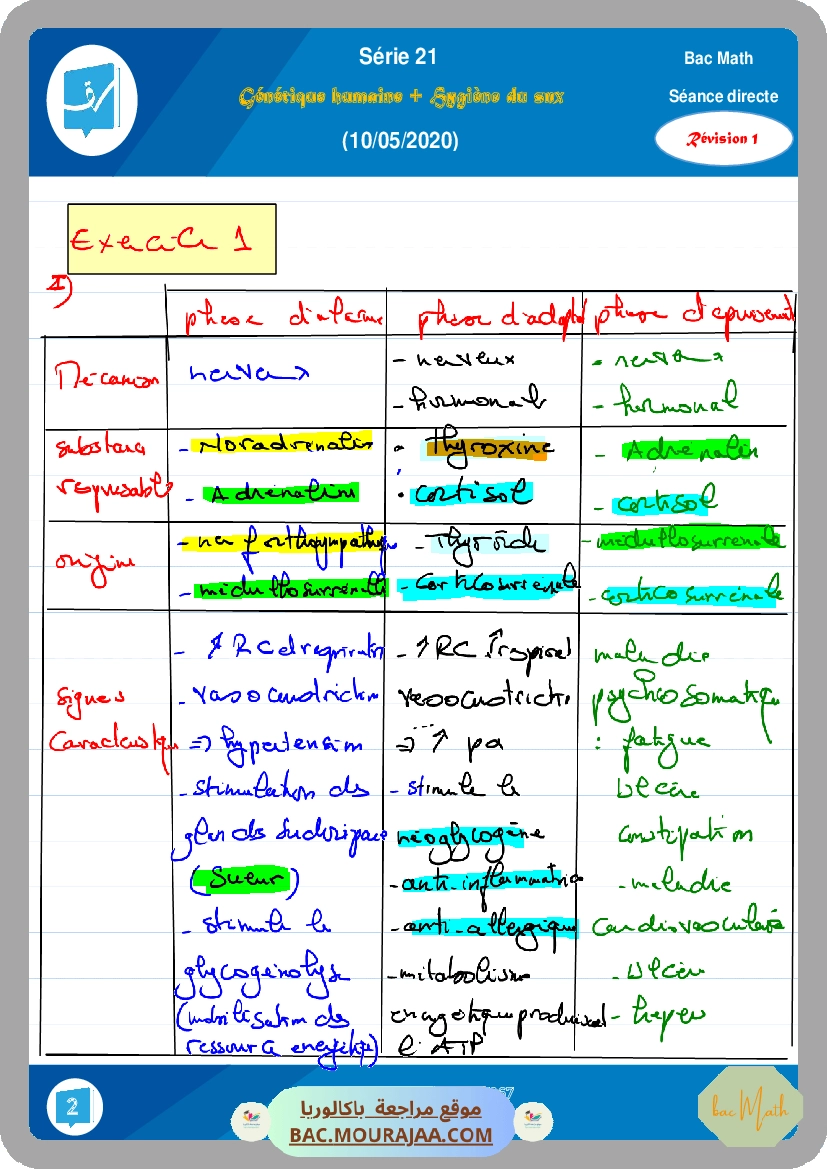 Série 21
Bac Math
Génétique humaine + Hygiène du snx
Séance directe
(10/05/2020)
Révision 1
Exercice 1
I)
phase d'alarme
phase d'adapt
phase d'épuisement
Mécanism
nerveux
- nerveux
- hormonale
- nerveux
- hormonal
substance
responsable
- Noradrenalin
- Adrénaline
- Thyroxine
- cortisol
- Adrenalin
- cortisol
origine
- médullosurrenale
- Thyroïde
- Corticosurrenale
- médullosurrenale
- corticosurrénale
signes
Caractéristiqu
- vasoconstriction
=> hypertension
- stimulation des
(Sueur)
- stimule la
glycogénolyse
(mobilisation des
ressource énergétiq)
vasoconstricti
=> ↑ pa
- stimule la
néoglycogène
- anti-inflammatrice
- anti-allergique
- métabolisme
énergétique produisant
l'ATP
maladie
psychosomatique
: fatigue
ulcère
constipation
- maladie
cardiovasculaire
- ulcère
- herpes
2
موقع مراجعة باكالوريا
BAC.MOURAJAA.COM
bac Math